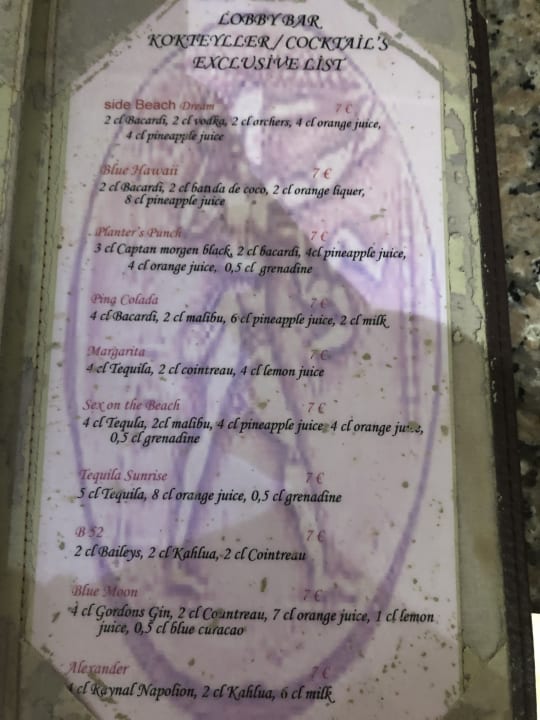 LOBBY BAR
KOKTEYLLER / COCKTAİL'S
EXCLUSİVE LİST
side Beach Dream 7 €
2 cl Bacardi, 2 cl vodka, 2 cl archers, 4 cl orange juice,
4 cl pineapple juice
Blue Hawaii 7 €
2 cl Bacardi, 2 cl batida de coco, 2 cl orange liquer,
8 cl pineapple juice
Planter's Punch 7 €
3 cl Captan morgen black, 2 cl bacardi, 4cl pineapple juice,
4 cl orange juice, 0,5 cl grenadine
Pina Colada 7 €
4 cl Bacardi, 2 cl malibu, 6 cl pineapple juice, 2 cl milk
Margarita 7 €
4 cl Tequila, 2 cl cointreau, 4 cl lemon juice
Sex on the Beach 7 €
4 cl Tequla, 2cl malibu, 4 cl pineapple juice, 4 cl orange juice,
0,5 cl grenadine
Tequila Sunrise 7 €
5 cl Tequila, 8 cl orange juice, 0,5 cl grenadine
B 52 7 €
2 cl Baileys, 2 cl Kahlua, 2 cl Cointreau
Blue Moon 7 €
4 cl Gordons Gin, 2 cl Countreau, 7 cl orange juice, 1 cl lemon
juice, 0,5 cl blue curacao
Alexander 7 €
4 cl Raynal Napolion, 2 cl Kahlua, 6 cl milk